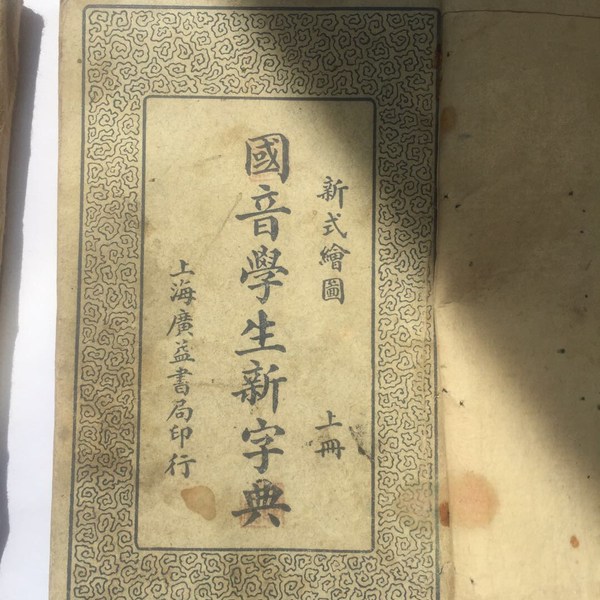 新式繪圖 上冊
國音學生新字典
上海廣益書局印行